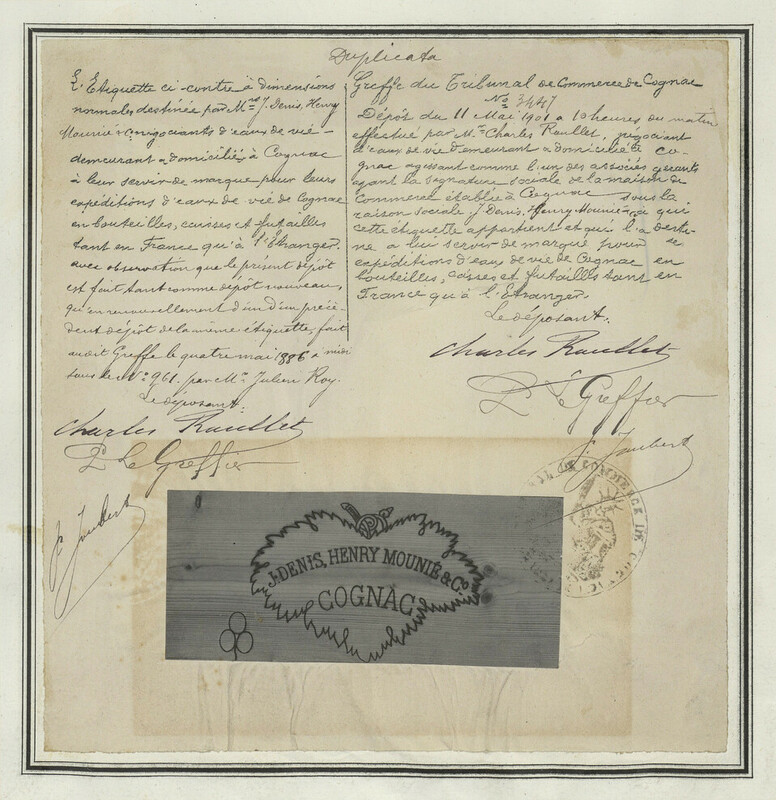 Duplicata
L'Etiquette ci-contre à dimensions
normales, destinée par Mrs J. Denis, Henry
Mounié & Co négociants d'eaux de vie
demeurant & domiciliés à Cognac
à leur servir de marque pour leurs
expéditions d'eaux de vie de Cognac
en bouteilles, caisses et futailles
tant en France qu'à l'Etranger.
avec observation que le présent dépôt
est fait tant comme dépôt nouveau,
qu'en renouvellement d'un d'un précé-
dent dépôt de la même étiquette, fait
audit Greffe le quatre mai 1886 à midi
sous le No 961. par Mr Julien Roy.
Le déposant.
Charles Roullet
P. Le Greffier
Joubert
Greffe du Tribunal de Commerce de Cognac
No 3447
Dépôt du 11 Mai 1901 à 10 heures du matin
effectué par Mr Charles Roullet, négociant
d'eaux de vie demeurant & domicilié à Co-
gnac agissant comme l'un des associés gérants
ayant la signature sociale de la maison de
Commerce établie à Cognac sous la
raison sociale J. Denis, Henry Mounié & Co à qui
cette étiquette appartient et qui l'a desti-
né à lui servir de marque pour
expéditions d'eau de vie de Cognac en
bouteilles, caisses et futailles tant en
France qu'à l'Etranger.
Le déposant.
Charles Roullet
P. Le Greffier
Joubert
J. DENIS, HENRY MOUNIÉ & Co.
COGNAC